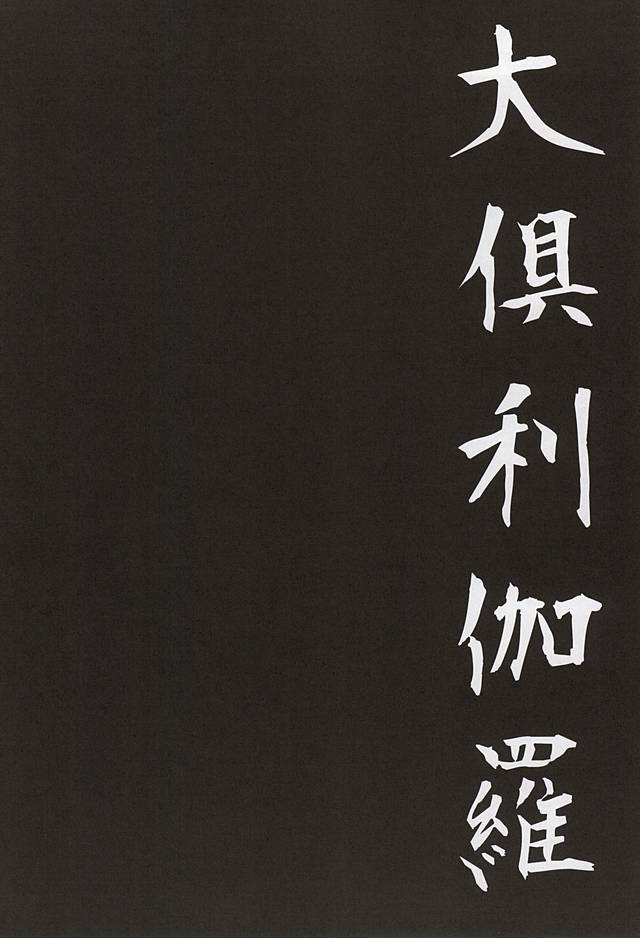 大倶利伽羅